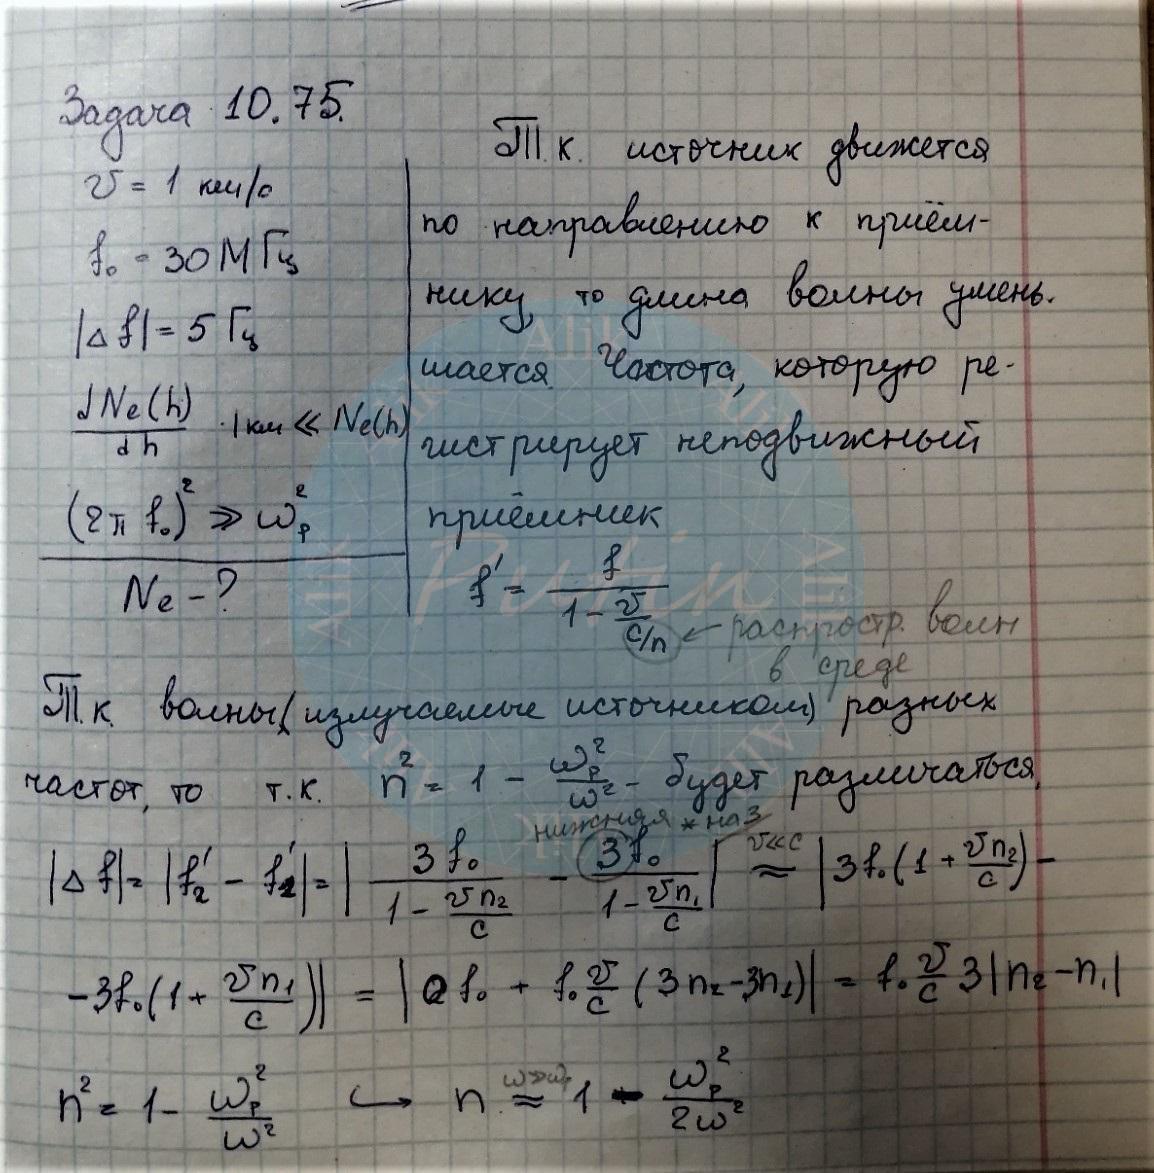 Задача 10.75.
v = 1 км/с
f₀ = 30 МГц
|Δf| = 5 Гц
dNe(h)/dh · 1 км ≪ Ne(h)
(2π f₀)² ≫ ωₚ²
Ne - ?
Т.к. источник движется
по направлению к приём-
нику, то длина волны умень-
шается. Частота, которую ре-
гистрирует неподвижный
приёмник
f' = f / (1 - v/(c/n)) ← распростр. волн
в среде
Т.к. волны (излучаемые источником) разных
частот, то т.к. n² = 1 - ωₚ²/ω² - будет различаться,
нижняя * на 3
|Δf| = |f₂' - f₁'| = |3f₀/(1 - vn₂/c) - 3f₀/(1 - vn₁/c)| v≪c ≈ |3f₀(1 + vn₂/c) -
- 3f₀(1 + vn₁/c)| = |0 f₀ + f₀ v/c (3n₂ - 3n₁)| = f₀ v/c 3|n₂ - n₁|
n² = 1 - ωₚ²/ω² ↪ n ω≫ωₚ ≈ 1 - ωₚ²/2ω²
Alik
Putin